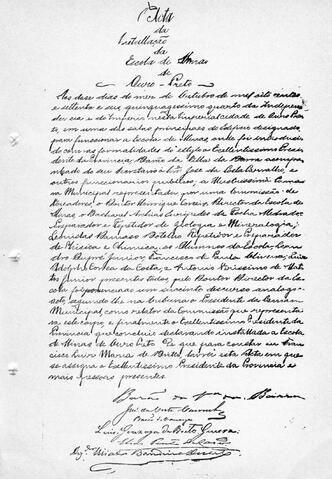 Acta
da
Installação
da
Escola de Minas
de
Ouro-Preto
Aos doze dias do mez de Outubro de mil oito centos
e setenta e seis, quinquagessimo quarto da Indepen
dencia e do Imperio nesta Imperial cidade de Ouro Preto
em uma das salas principaes do edificio designado
para funccionar a Escola de Minas, onde foi introduzido
com as formalidades do estylo o Excellentissimo Presi
dente da Provincia Barão da Villa da Barra acompa
nhado do seu Secretario José da Costa Carvalho, e
outros funccionarios publicos, a Illustrissima Camara
Municipal representada por uma Commissão de
Vereadores, o Doutor Henrique Gorceix, Director da Escola de
Minas, o Bacharel Archias Euripedes da Rocha Medrado
Preparador e Repetidor de Geologia e Mineralogia,
Leonidas Damazio Botelho, Repetidor e Preparador
de Phisica e Chimica, os Alumnos da Escola
Francisco de Paula Oliveira, Luiz
Adolpho Corrêa da Costa, e Antonio
Junior presentes todos, pelo Doutor Director da Es
cola foi pronunciado um succinto discurso analogo
seguindo-lhe na tribuna o Presidente da Camara
Municipal como relator da Commissão que representa
va este corpo, e finalmente o Excellentissimo Presidente da
Provincia que concluiu declarando installada a Escola
de Minas de Ouro Preto. E para constar eu Fran
cisco Luiz Maria de Britto, lavrei esta Acta em que
se assigna o Excellentissimo Presidente da Provincia, e
mais pessoas presentes.
Barão da Villa da Barra
José da Costa
Barão de Camargos
Luiz